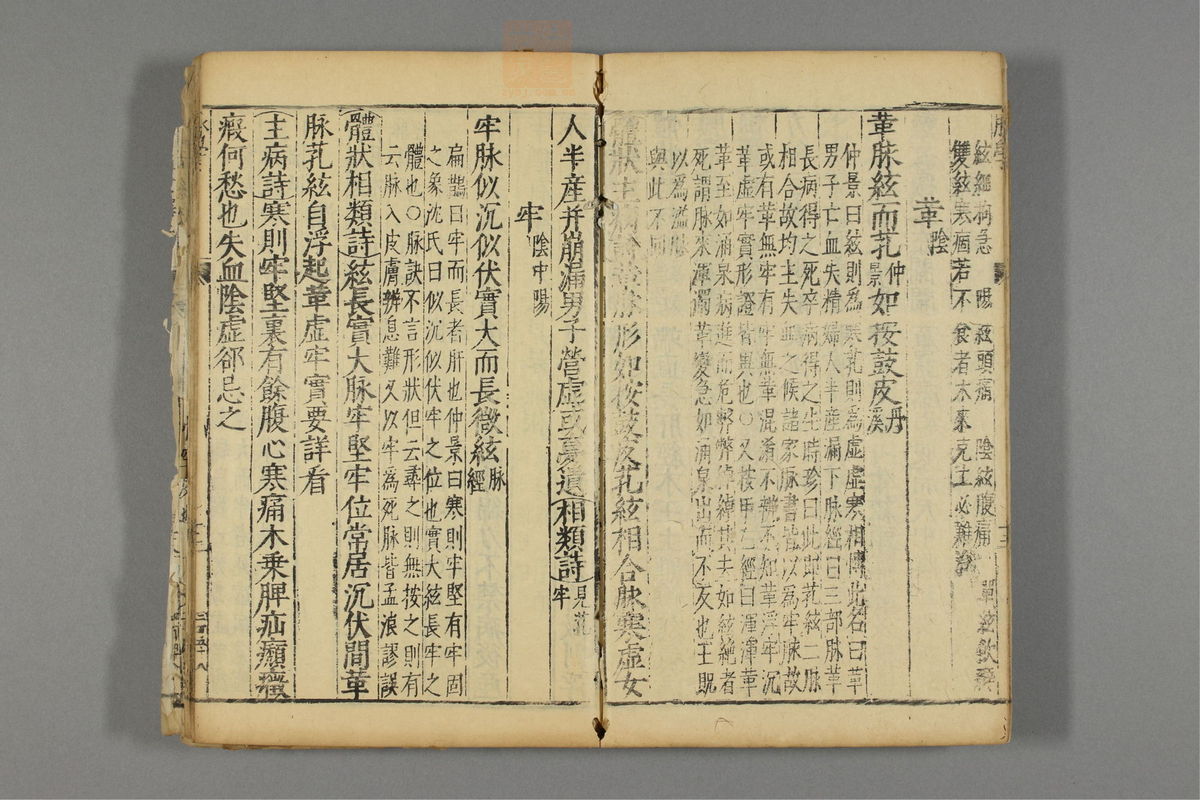 弦緊病急 陽弦頭痛 陰弦腹痛 單弦飲癖
雙弦寒痼若不食者木來克土必難治
革陰
革脉弦而芤仲景如按鼓皮丹溪
仲景曰弦則爲寒芤則爲虛虛寒相摶此名曰革
男子亡血失精婦人半産漏下脉經曰三部脉革
長病得之死卒病得之生時珍曰此即芤弦二脉
相合故均主失血之候諸家脉書皆以爲牢脉故
或有革無牢有牢無革混淆不辨不知革浮牢沉
革虛牢實形證皆異也○又按甲乙經曰渾渾革
革至如涌泉病進而危弊弊綽綽其去如弦絕者
死謂脉來渾濁革變急如涌泉出而不反也王貺
以爲溢脉
與此不同
體狀主病詩革脉形如按鼓皮芤弦相合脉寒虛女
人半産并崩漏男子營虛或夢遺相類詩見芤牢
牢陰中陽
牢脉似沉似伏實大而長微弦脉經
扁鵲曰牢而長者肝也仲景曰寒則牢堅有牢固
之象沈氏曰似沉似伏牢之位也實大弦長牢之
體也○脉訣不言形狀但云尋之則無按之則有
云脉入皮膚辨息難又以牢爲死脉皆孟浪謬誤
體狀相類詩弦長實大脉牢堅牢位常居沉伏間革
脉芤弦自浮起革虛牢實要詳看
主病詩寒則牢堅裏有餘腹心寒痛木乘脾疝㿗癥
瘕何愁也失血陰虛卻忌之